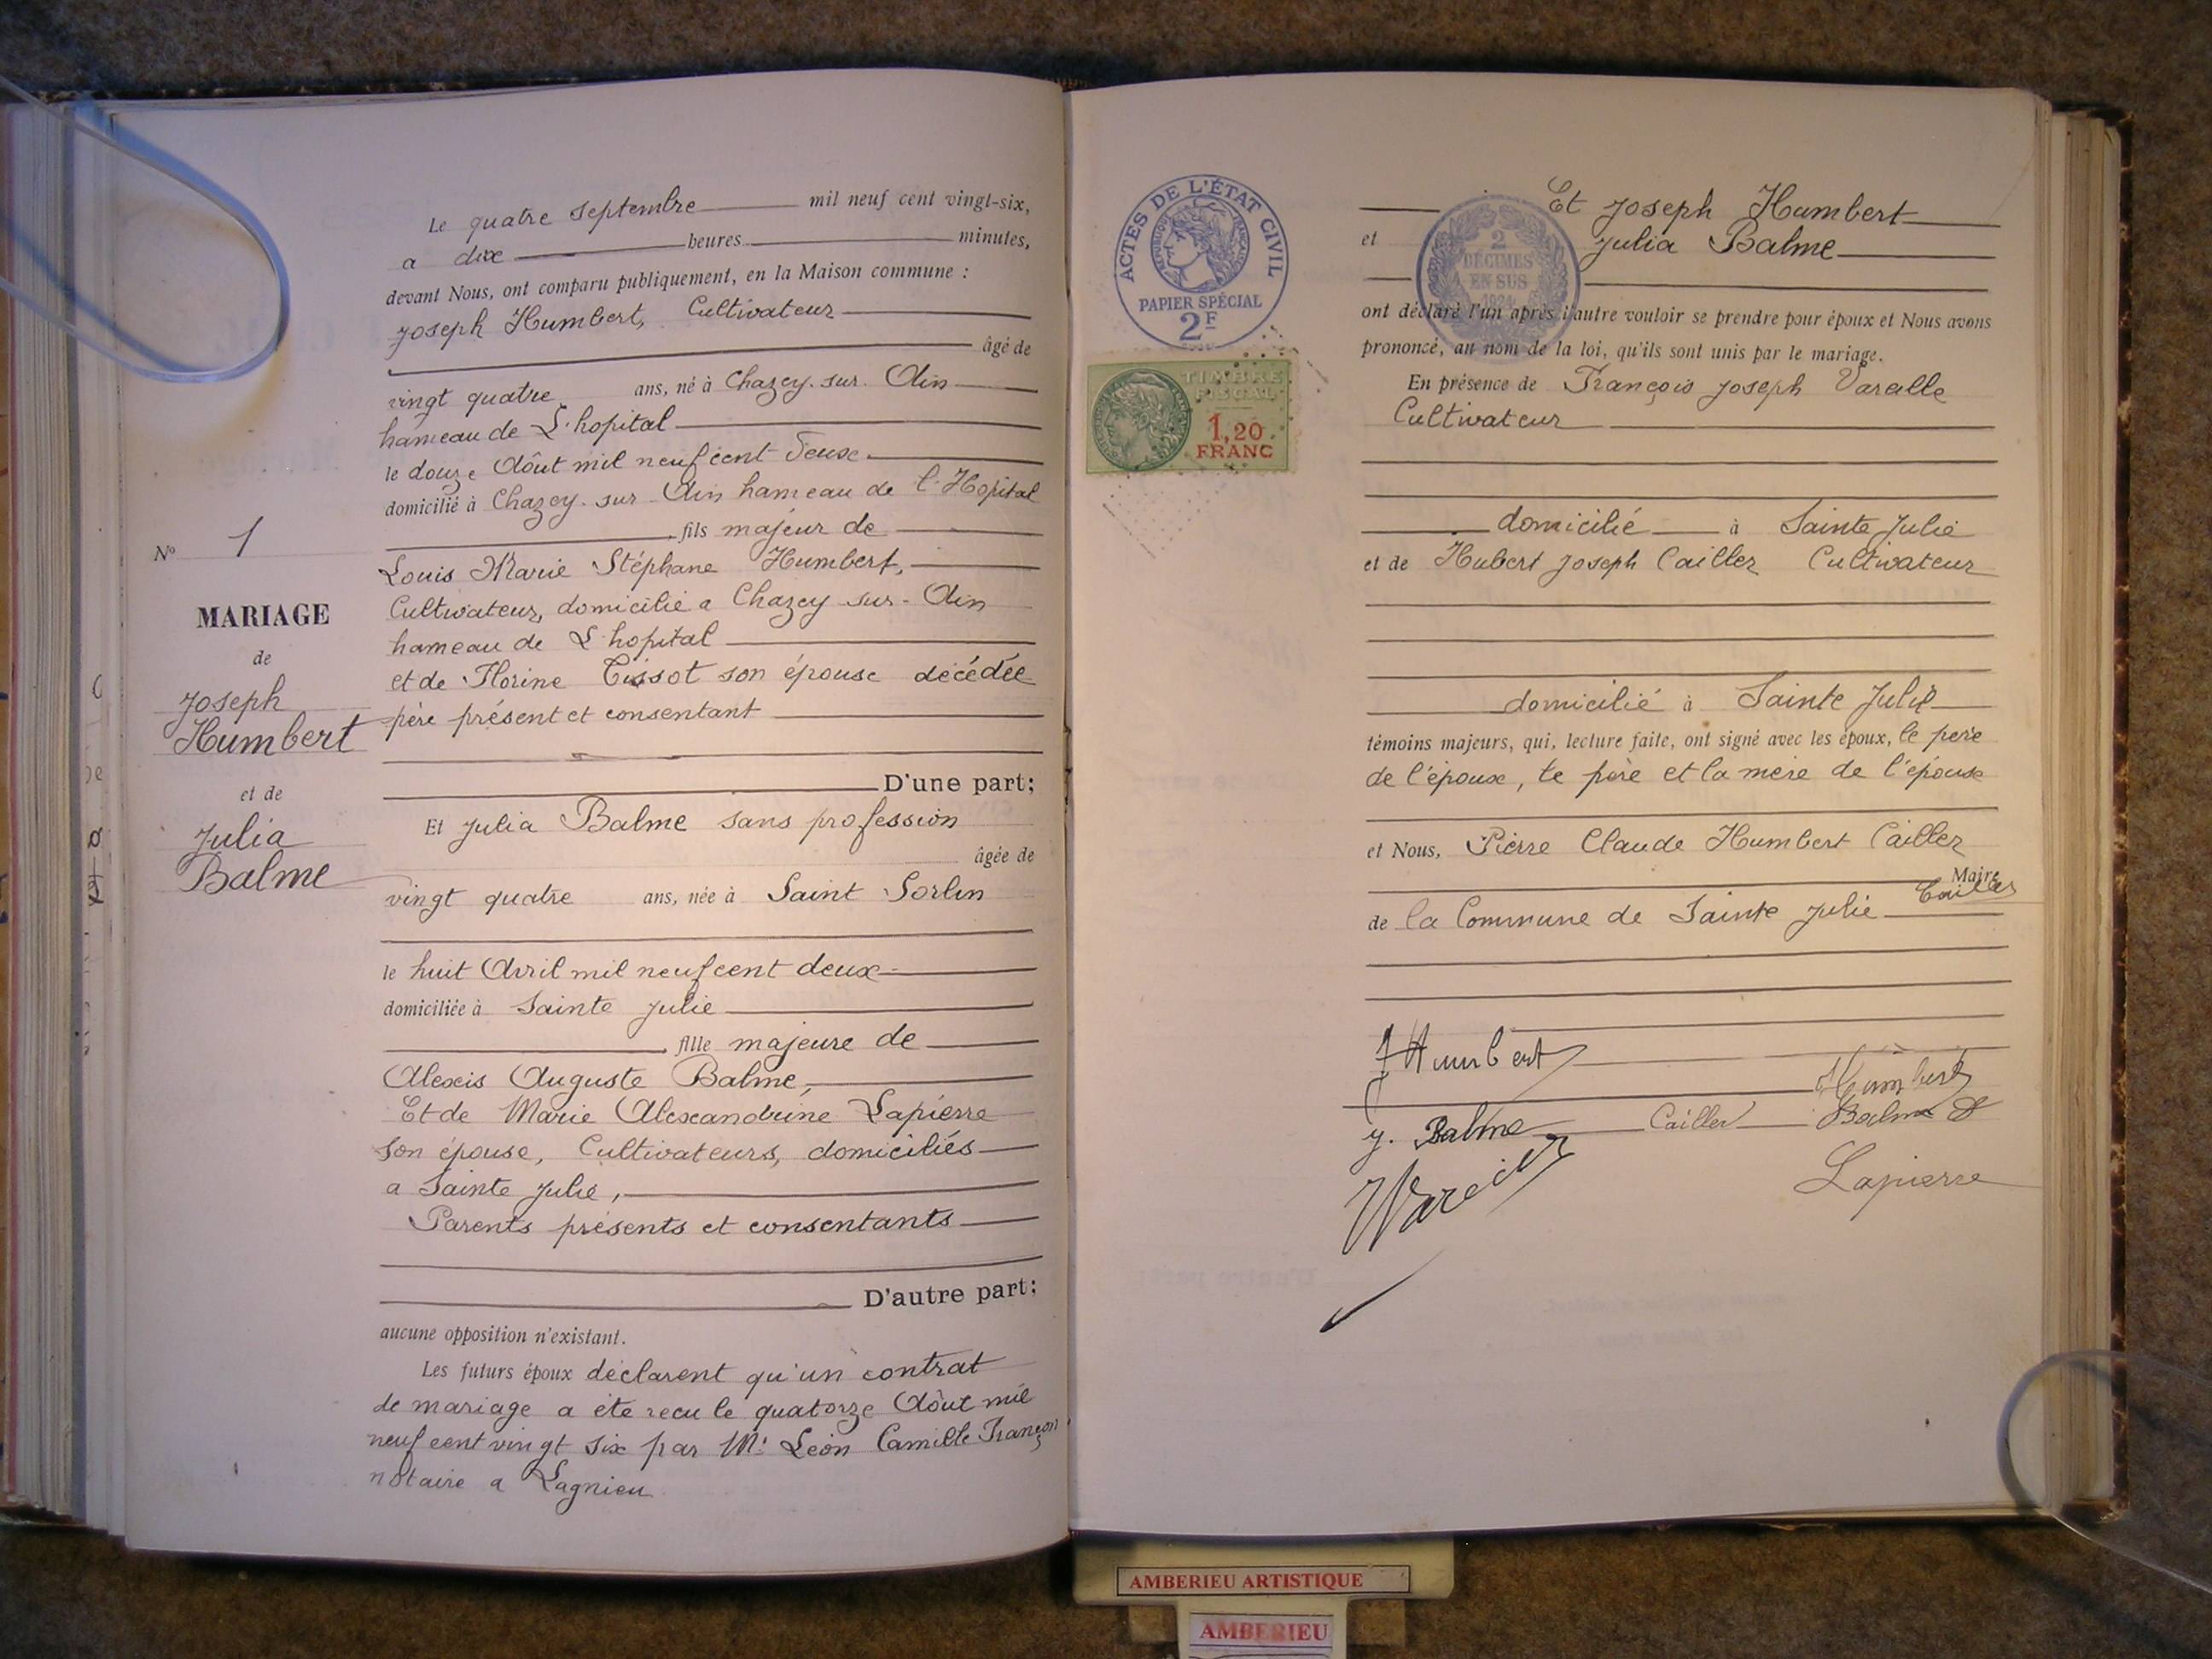 Le quatre Septembre mil neuf cent vingt-six,
a dix heures minutes,
devant Nous, ont comparu publiquement, en la Maison commune :
Joseph Humbert, Cultivateur
âgé de
vingt quatre ans, né à Chazey-sur-Ain
hameau de L'hopital
le douze Aôut mil neuf cent Deux
domicilié à Chazey-sur-Ain hameau de l'Hopital
fils majeur de
Louis Marie Stéphane Humbert,
Cultivateur, domicilié a Chazey sur-Ain
hameau de L'hopital
et de Florine Tissot son épouse décédée
père présent et consentant
D'une part;
Et Julia Balme sans profession
âgée de
vingt quatre ans, née à Saint Sorlin
le huit Avril mil neuf cent deux
domiciliée à Sainte Julie
fille majeure de
Alexis Auguste Balme,
Et de Marie Alexandrine Lapierre
son épouse, Cultivateurs, domiciliés
a Sainte Julie,
Parents présents et consentants
D'autre part;
aucune opposition n'existant.
Les futurs époux déclarent qu'un contrat
de mariage a été recu le quatorze Aôut mil
neuf cent vingt six par Me Léon Camille Françon
notaire a Lagnieu
N° 1
MARIAGE
de
Joseph
Humbert
et de
Julia
Balme
ACTES DE L'ÉTAT CIVIL
RÉPUBLIQUE FRANÇAISE
PAPIER SPÉCIAL
2F
TIMBRE
FISCAL
1,20
FRANC
2
DÉCIMES
EN SUS
1924
Et Joseph Humbert
et Julia Balme
ont déclaré l'un après l'autre vouloir se prendre pour époux et Nous avons
prononcé, au nom de la loi, qu'ils sont unis par le mariage.
En présence de François Joseph
Cultivateur
domicilié à Sainte Julie
et de Hubert Joseph Cailler Cultivateur
domicilié à Sainte Julie
témoins majeurs, qui, lecture faite, ont signé avec les époux, le pere
de l'époux, le père et la mère de l'épouse
et Nous, Pierre Claude Humbert Cailler
Maire
de la Commune de Sainte Julie Cailler
J Humbert
Humbert
J. Balme Cailler Balme A
Lapierre
AMBERIEU ARTISTIQUE
AMBERIEU